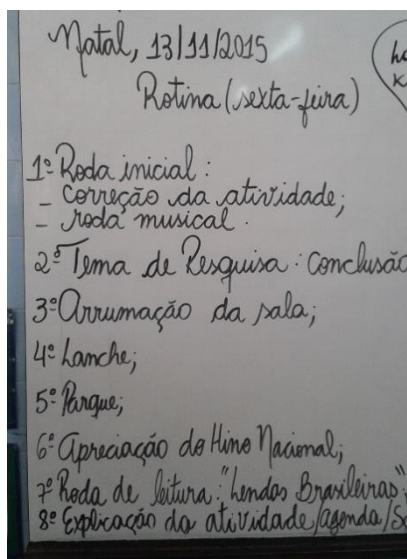 Natal, 13/11/2015
Rotina (sexta-feira)
1º Roda inicial:
- Correção da atividade;
- roda musical.
2º Tema de Pesquisa: Conclusão
3º Arrumação da sala;
4º Lanche;
5º Parque;
6º Apreciação do Hino Nacional;
7º Roda de leitura: "Lendas Brasileiras";
8º Explicação da atividade/agenda/